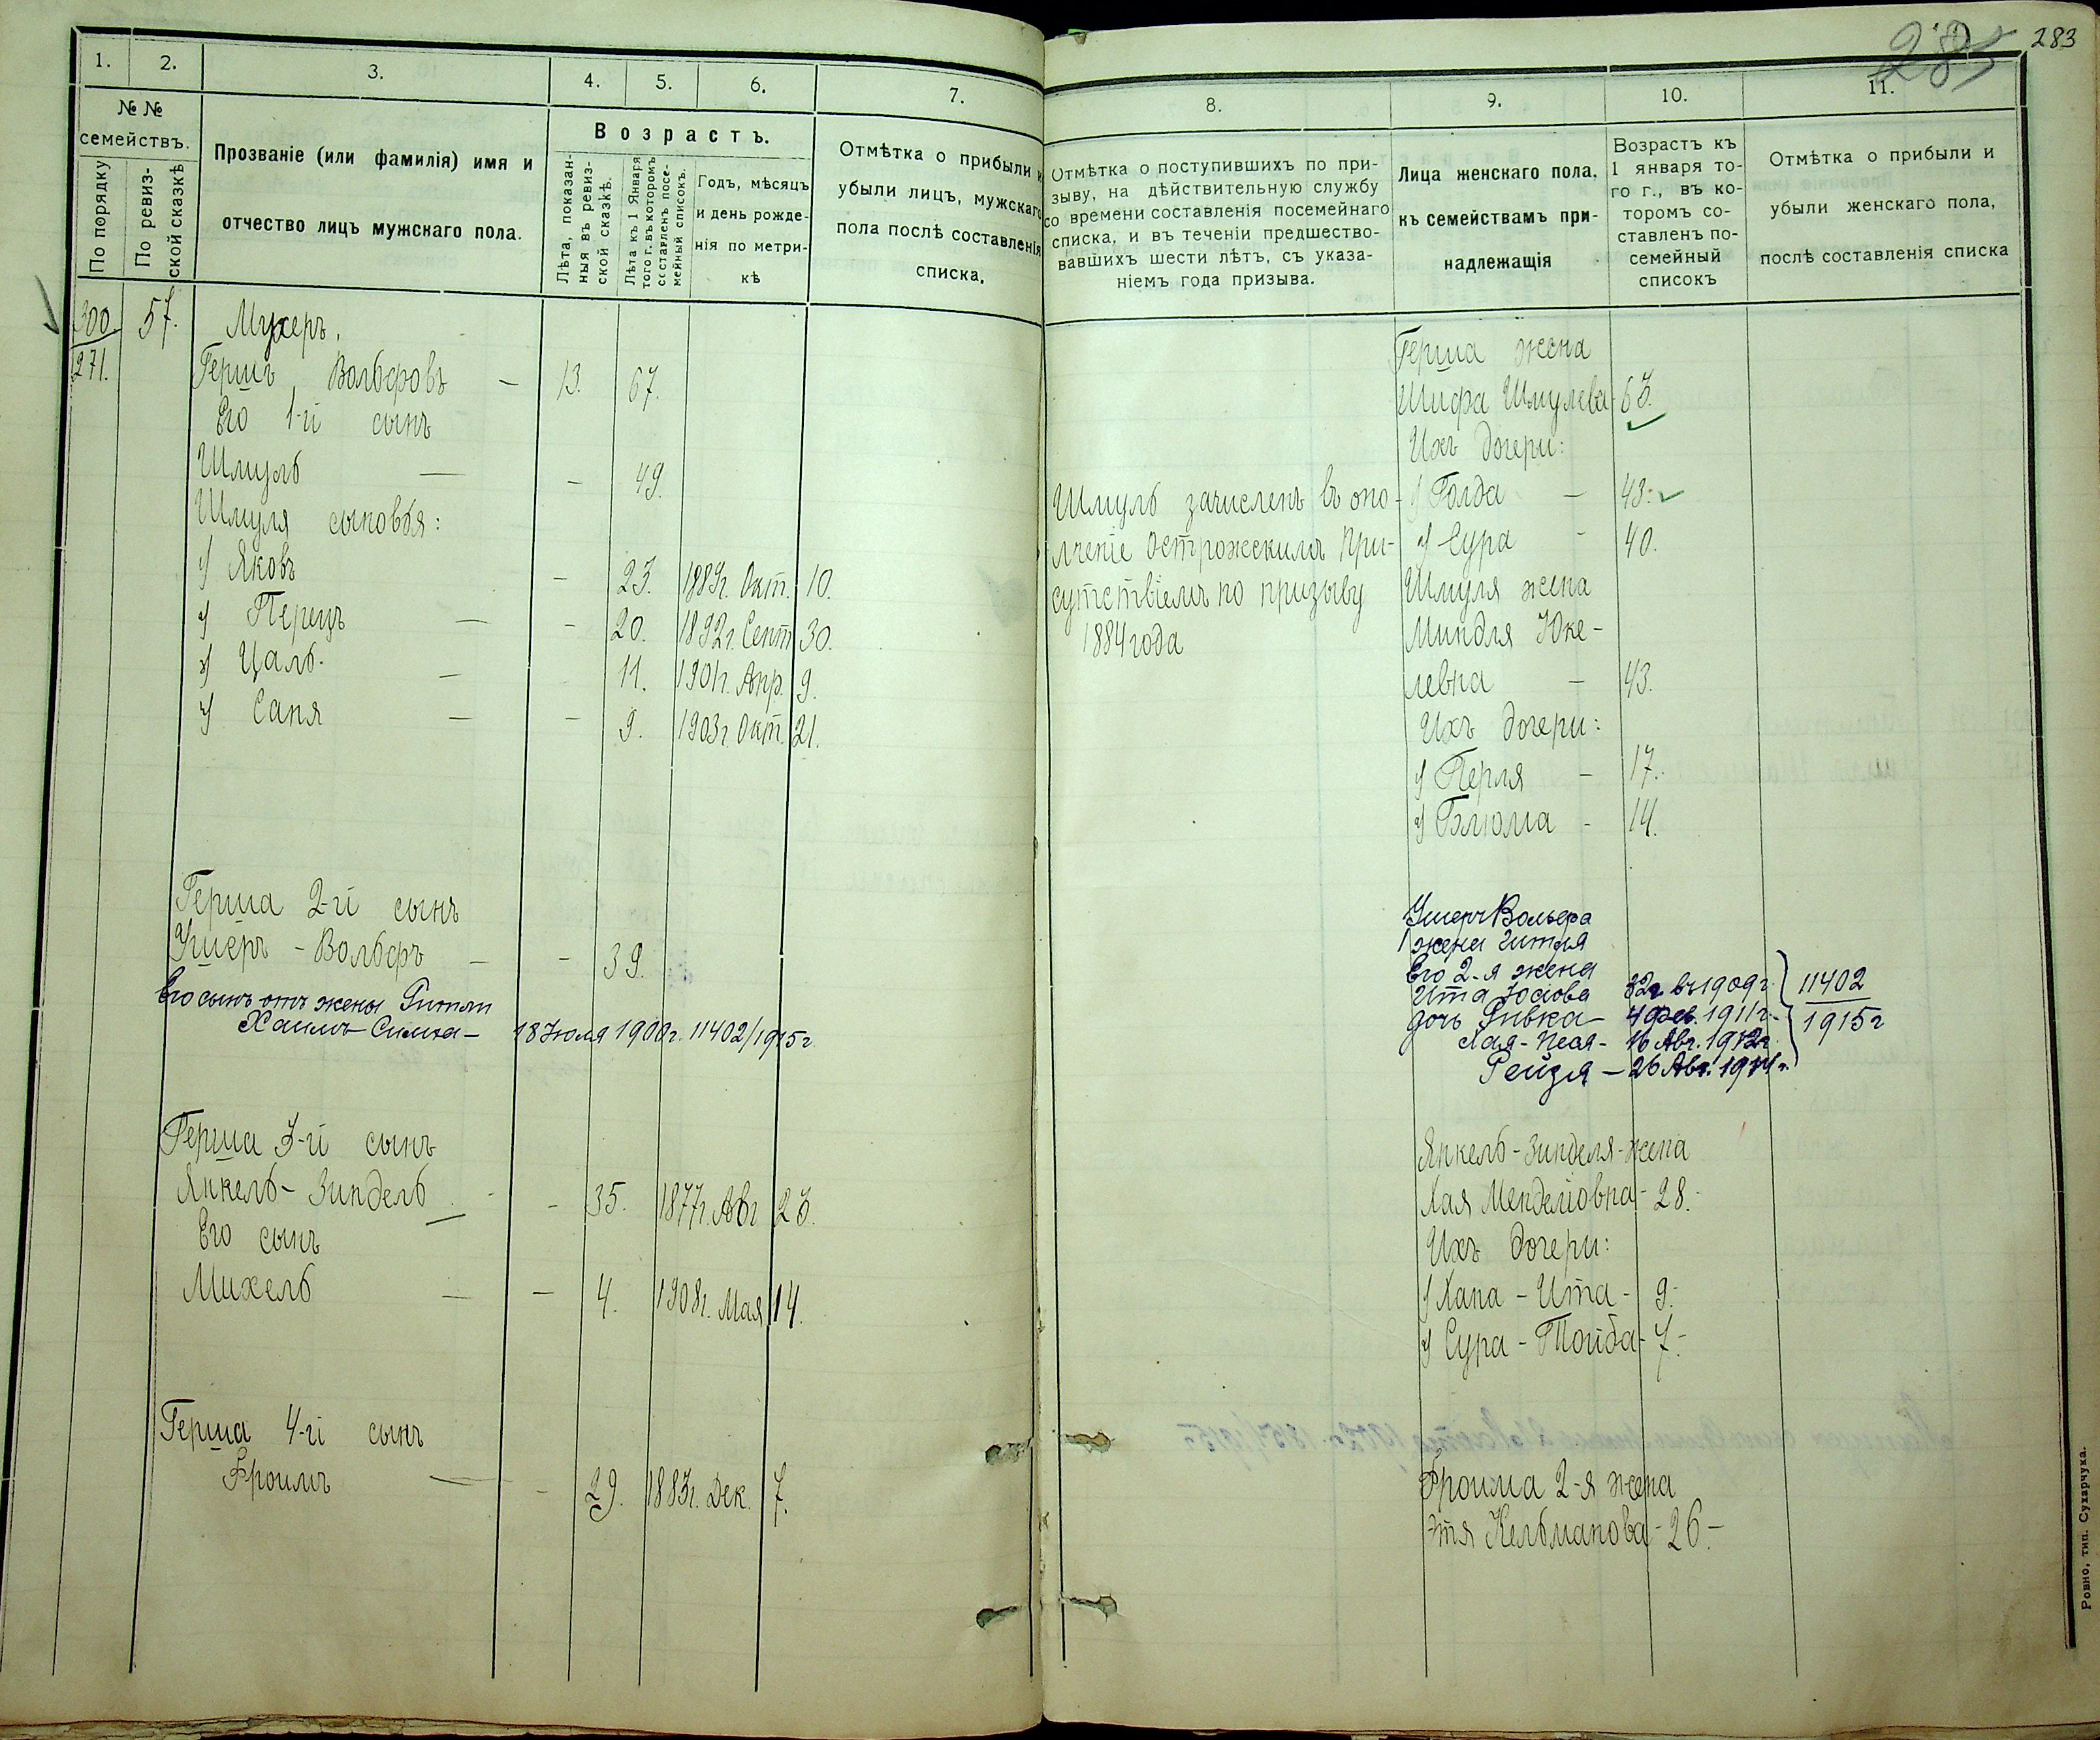 1.
2.
3.
4.
5.
6.
7.
№ №
семействъ.
По порядку
По ревиз-
ской сказкѣ
Прозваніе (или фамилія) имя и
отчество лицъ мужскаго пола.
Возрастъ.
Лѣта, показан-
ныя въ ревиз-
ской сказкѣ.
Лѣта къ 1 Января
того г. въ которомъ
составленъ посе-
мейный списокъ.
Годъ, мѣсяцъ
и день рожде-
нія по метри-
кѣ
Отмѣтка о прибыли и
убыли лицъ, мужскаго
пола послѣ составленія
списка.
300 57. Мухеръ.
271. Гершъ Вольфовъ – 13. 67.
Его 1-й сынъ
Шмуль — – 49.
Шмуля сыновья:
1) Яковъ – 23. 1889г. Окт. 10.
2) Перецъ — – 20. 1892г. Сент. 30.
3) Цаль. — – 11. 1901г. Апр. 9.
4) Саня — – 9. 1903г. Окт. 21.
Герша 2-й сынъ
Ушеръ - Вольфъ — – 39.
Его сынъ отъ жены Гитли
Хаимъ-Симха – 18 Іюля 1900г. 11402/1915г.
Герша 3-й сынъ
Янкель - Зиндель – 35. 1877г. Авг. 23.
Его сынъ
Михель — – 4. 1908г. Мая 14.
Герша 4-й сынъ
Фроимъ — – 29. 1883г. Дек. 7.
285
283
8.
9.
10.
11.
Отмѣтка о поступившихъ по при-
зыву, на дѣйствительную службу
со времени составленія посемейнаго
списка, и въ теченіи предшество-
вавшихъ шести лѣтъ, съ указа-
ніемъ года призыва.
Лица женскаго пола,
къ семействамъ при-
надлежащія
Возрастъ къ
1 января то-
го г., въ ко-
торомъ со-
ставленъ по-
семейный
списокъ
Отмѣтка о прибыли и
убыли женскаго пола,
послѣ составленія списка
Шмуль зачисленъ въ опо-
лченіе Острожскимъ При-
сутствіемъ по призыву
1884 года
Герша жена
Шифра Шмулева 63.
Ихъ дочери:
1) Голда – 43.
2) Сура – 40.
Шмуля жена
Миндля Юке-
левна – 43.
Ихъ дочери:
1) Перля – 17.
2) Блюма – 14.
Ушеръ Вольфа
1 жена Гитля
Его 2-я жена
Ита Іосіова 32г. въ 1909г. 11402
дочь Ривка – 4 Фев. 1911г. 1915г
Хая-Песя – 16 Авг. 1912г.
Рейзя – 26 Авг. 1914г.
Янкель-Зинделя-жена
Хая Менделіовна – 28.
Ихъ дочери:
1) Хана - Ита – 9.
2) Сура - Тойба – 7.
Фроима 2-я жена
Этя Кельманова – 26 –
Ровно, тип. Сухарчука.